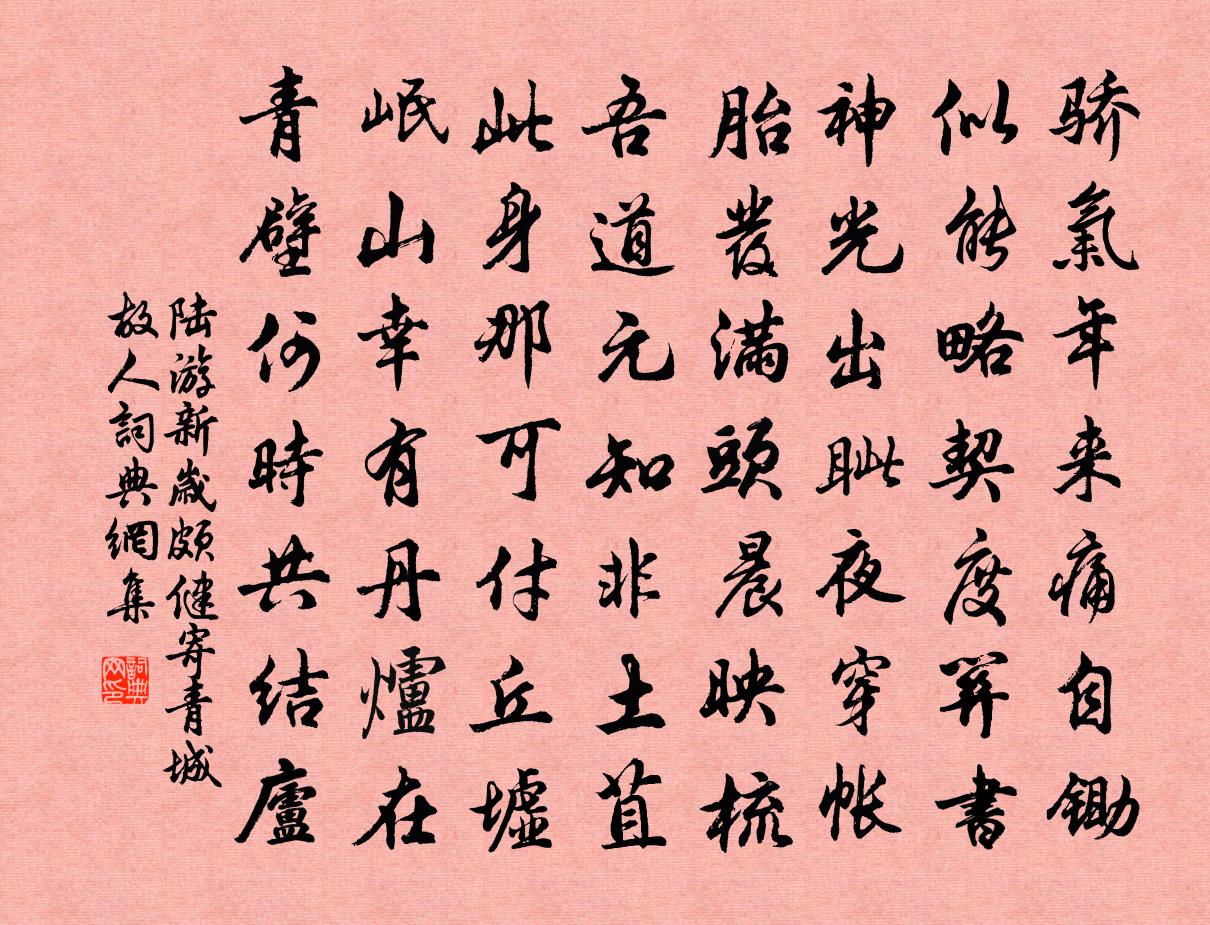 骄氣年来痛自锄
似能略契度关書
神光出眦夜穿帐
胎髮满頭晨映梳
吾道元知非土苴
此身那可付丘墟
岷山幸有丹爐在
青壁何時共结廬
陆游新歲頗健寄青城
故人詞典網集
詞典网印